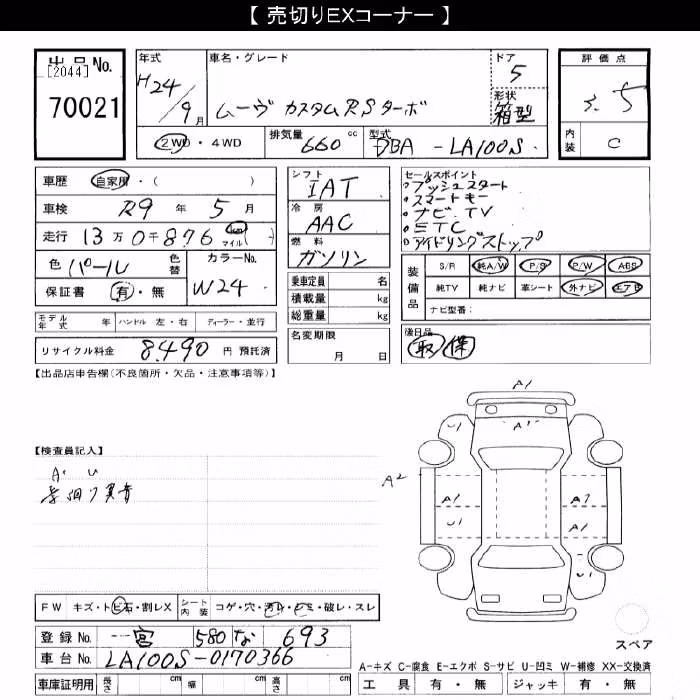 【 売切りEXコーナー 】
出品No.
[2044]
70021
年式
H24/9月
車名・グレード
ムーヴ カスタムRSターボ
ドア
5
形状
箱型
2WD・4WD
排気量 660 cc
型式 DBA-LA100S
評価点
3.5
内装 C
車歴 自家用・( )
車検 R9年 5月
走行 13万0千876 km マイル ( )
色 パール 色替
カラーNo.
W24
保証書 有・無
シフト
IAT
冷房
AAC
燃料
ガソリン
乗車定員 名
積載量 kg
総重量 kg
セールスポイント
プッシュスタート
スマートキー
ナビ.TV
ETC
アイドリングストップ
装備品
S/R 純A/W P/S P/W ABS
純TV 純ナビ 革シート 外ナビ エアB
ナビ型番:
モデル年式 年 ハンドル 左・右 ディーラー・並行
名変期限
月 日
後日品
取 保
リサイクル料金 8,490 円 預託済
【出品店申告欄(不良箇所・欠品・注意事項等)】
【検査員記入】
A' U
A1
U1 A1 U1
A2
A1 A2
U1 A1
U1
FW キズ・トビ石・割レX シート内装 コゲ・穴・汚レ・シミ・破レ・スレ
登録No. 一宮 580 な 693
車台No. LA100S-0170366
車庫証明用 長さ cm 幅 cm 高さ cm
スペア
A-キズ C-腐食 E-エクボ S-サビ U-凹ミ W-補修 XX-交換済
工具 有・無 ジャッキ 有・無